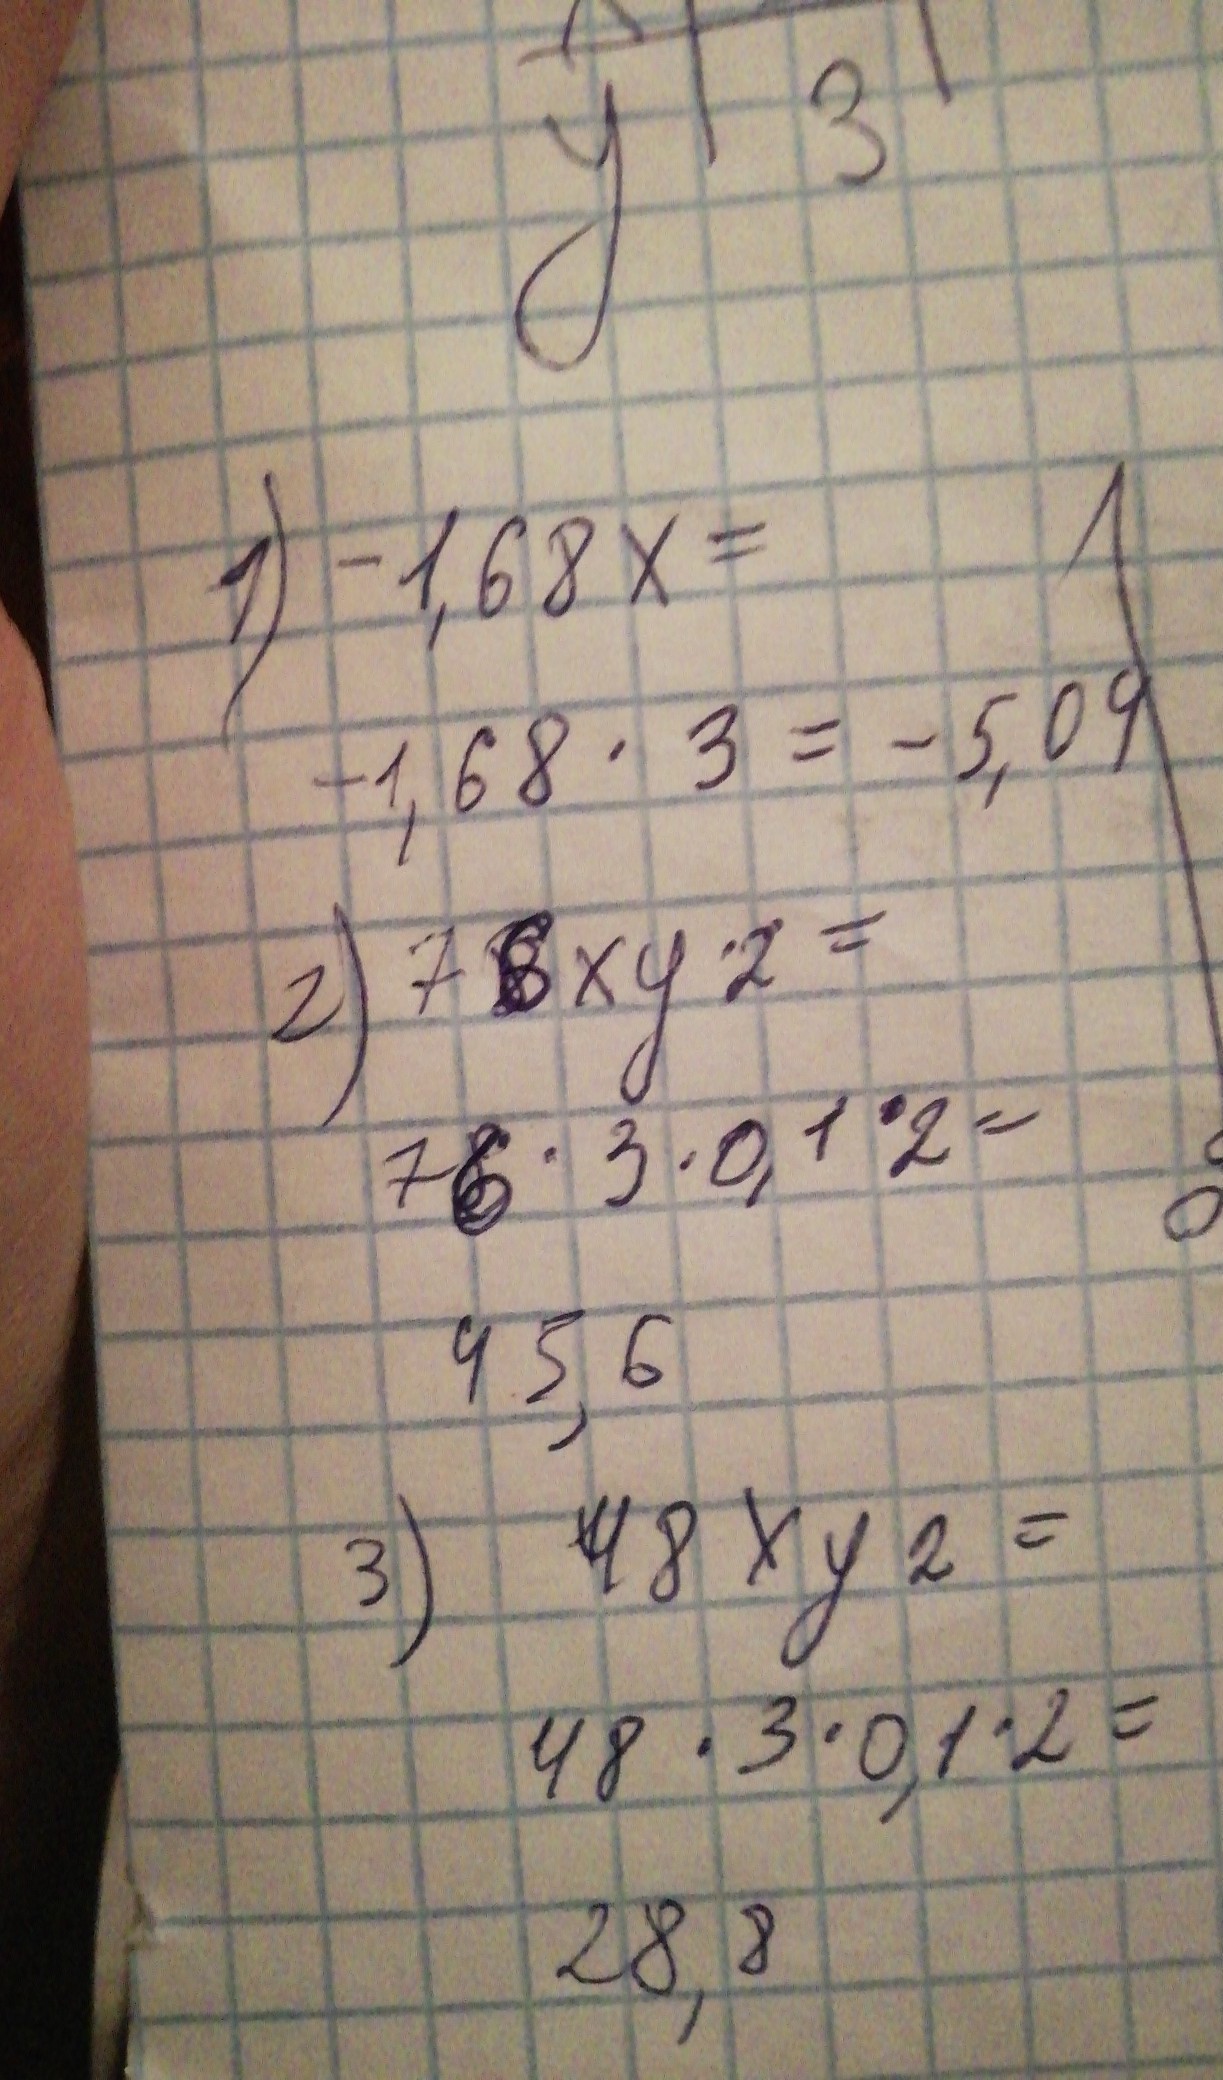 y 3
1) -1,68x=
-1,68 · 3 = -5,04
2) 76xy·2=
76 · 3 · 0,1 · 2=
45,6
3) 48xy2=
48 · 3 · 0,1 · 2=
28,8